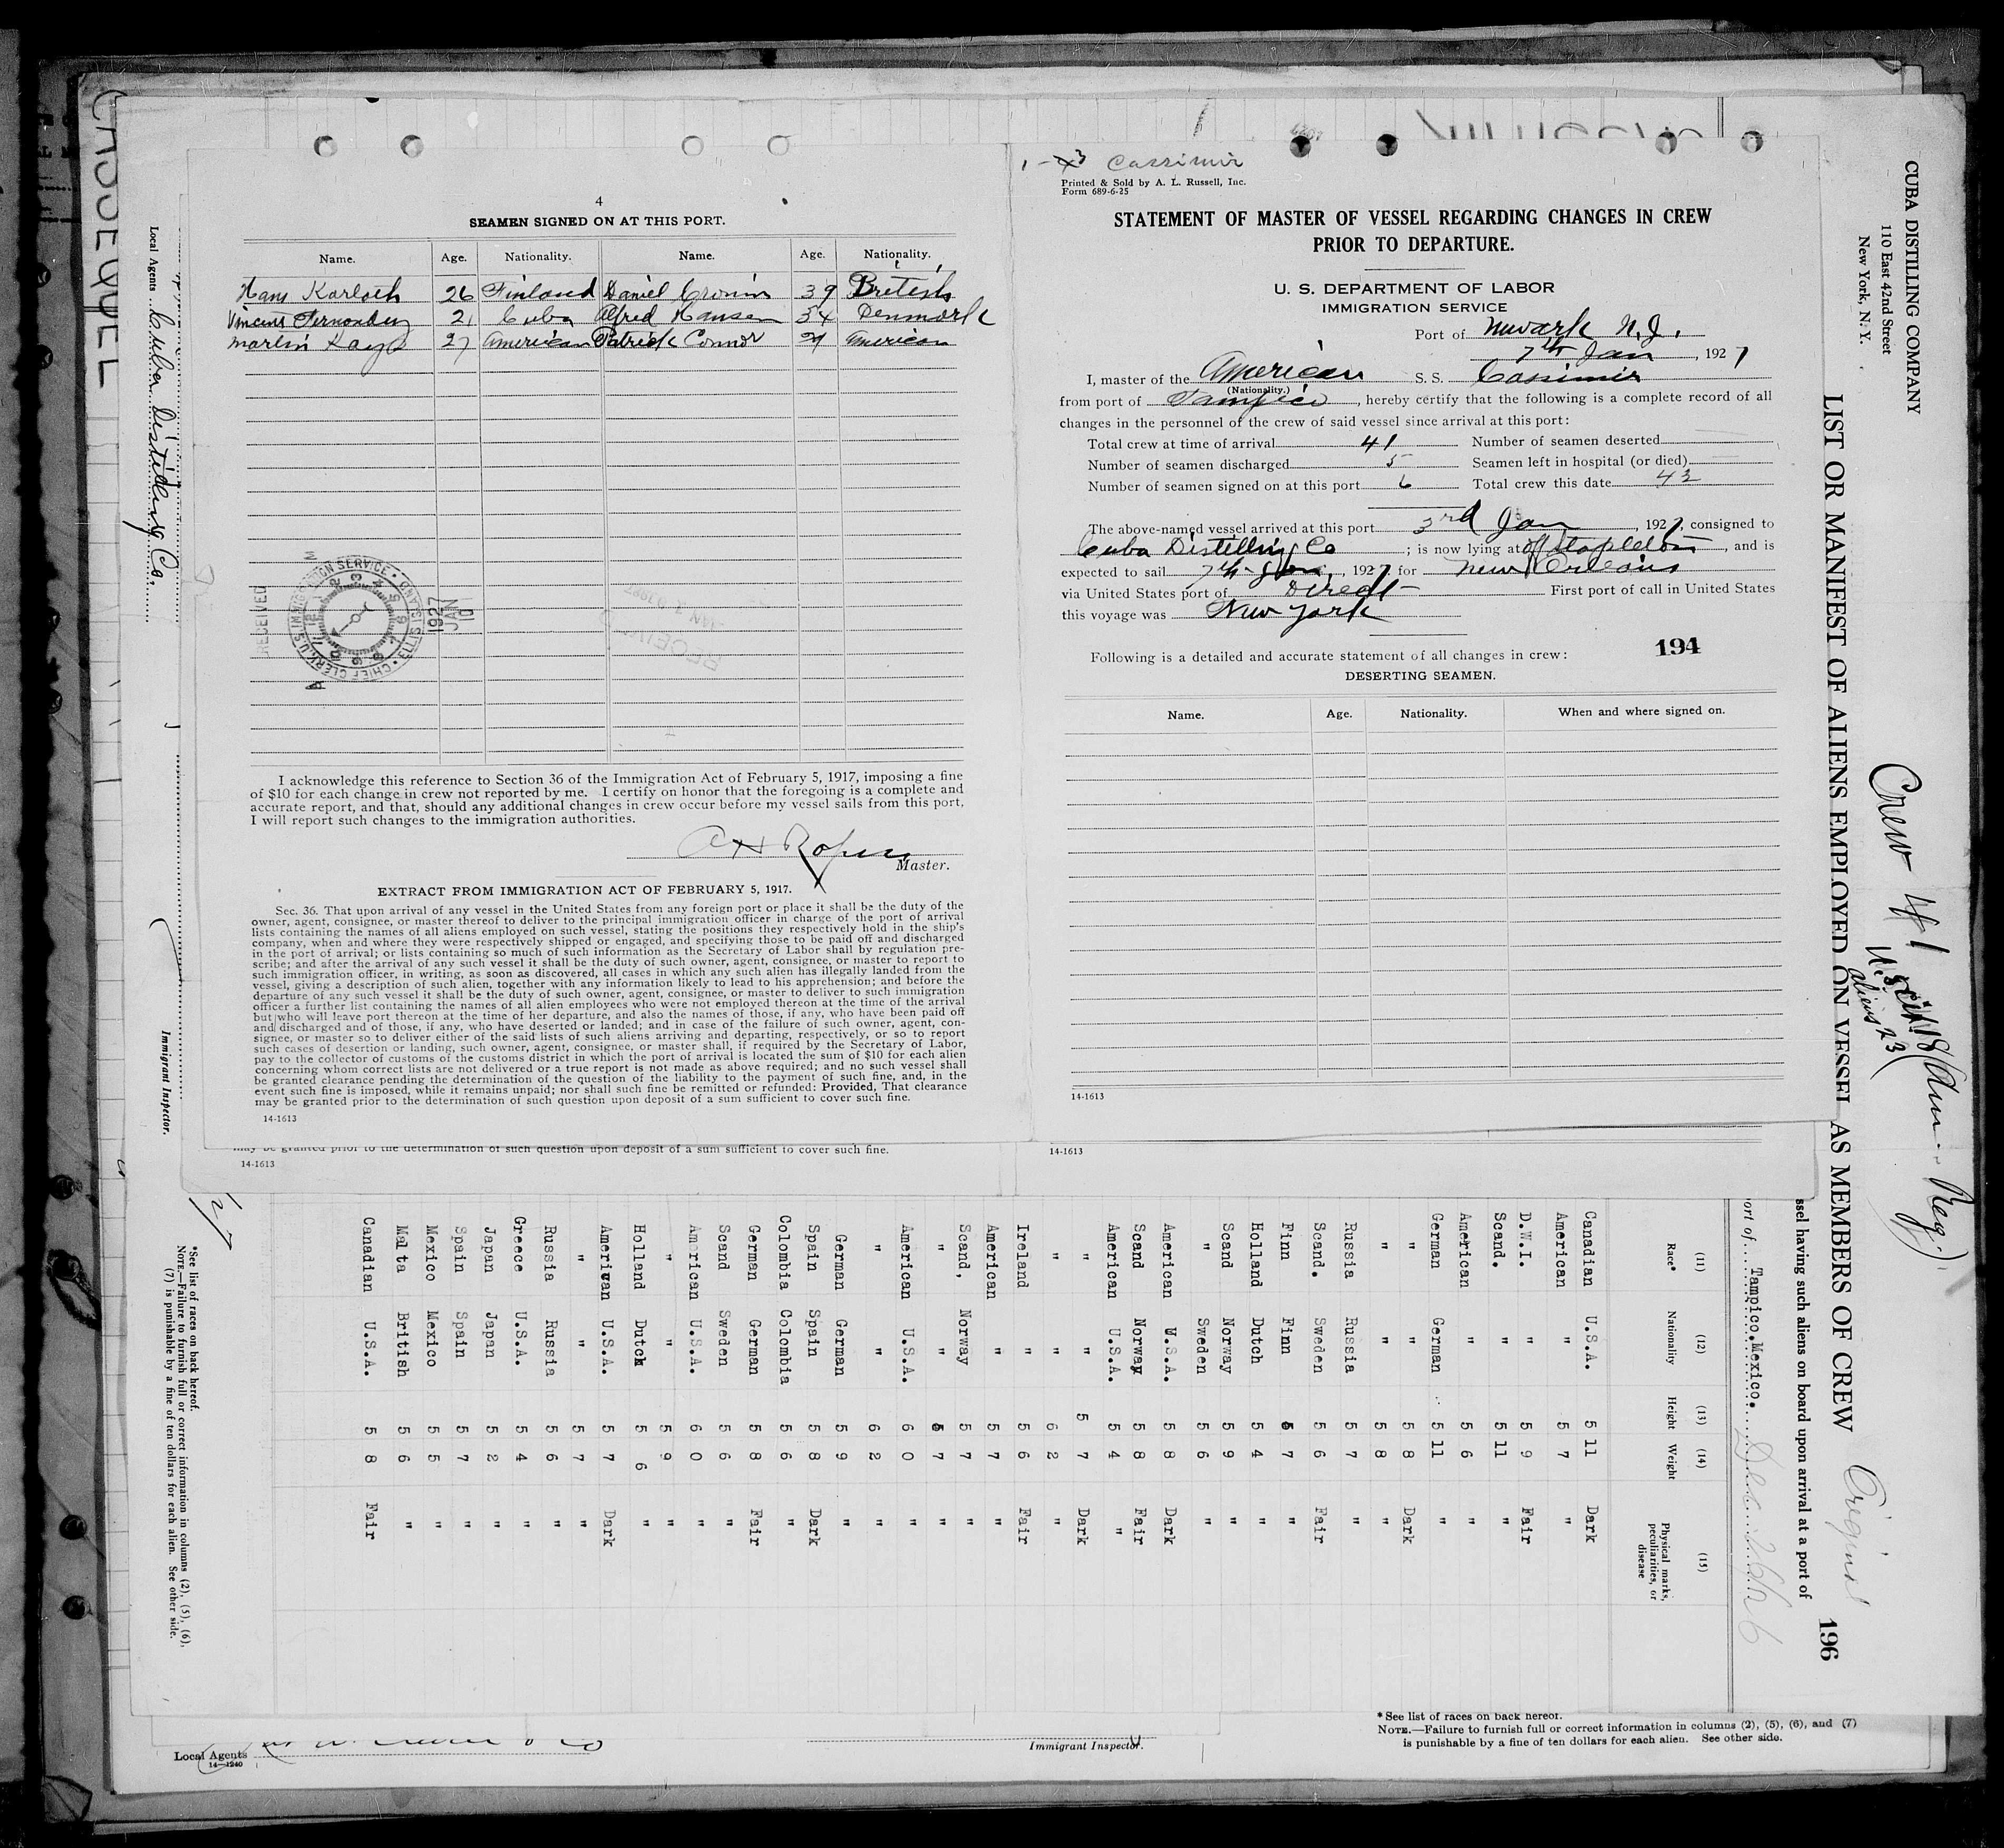 4
SEAMEN SIGNED ON AT THIS PORT.
Name. Age. Nationality. Name. Age. Nationality.
Hans Karloch 26 Finland Daniel Cronin 39 British
Vincent Fernandez 21 Cuba Alfred Hansen 34 Denmark
Martin Kays 27 American Patrick Connor 21 American
RECEIVED
U.S. IMMIGRATION SERVICE • CHIEF CLERK • ELLIS ISLAND
1927
JAN
10
I acknowledge this reference to Section 36 of the Immigration Act of February 5, 1917, imposing a fine
of $10 for each change in crew not reported by me. I certify on honor that the foregoing is a complete and
accurate report, and that, should any additional changes in crew occur before my vessel sails from this port,
I will report such changes to the immigration authorities.
Master.
EXTRACT FROM IMMIGRATION ACT OF FEBRUARY 5, 1917.
Sec. 36. That upon arrival of any vessel in the United States from any foreign port or place it shall be the duty of the
owner, agent, consignee, or master thereof to deliver to the principal immigration officer in charge of the port of arrival
lists containing the names of all aliens employed on such vessel, stating the positions they respectively hold in the ship's
company, when and where they were respectively shipped or engaged, and specifying those to be paid off and discharged
in the port of arrival; or lists containing so much of such information as the Secretary of Labor shall by regulation pre-
scribe; and after the arrival of any such vessel it shall be the duty of such owner, agent, consignee, or master to report to
such immigration officer, in writing, as soon as discovered, all cases in which any such alien has illegally landed from the
vessel, giving a description of such alien, together with any information likely to lead to his apprehension; and before the
departure of any such vessel it shall be the duty of such owner, agent, consignee, or master to deliver to such immigration
officer a further list containing the names of all alien employees who were not employed thereon at the time of the arrival
but who will leave port thereon at the time of her departure, and also the names of those, if any, who have been paid off
and discharged and of those, if any, who have deserted or landed; and in case of the failure of such owner, agent, con-
signee, or master so to deliver either of the said lists of such aliens arriving and departing, respectively, or so to report
such cases of desertion or landing, such owner, agent, consignee, or master shall, if required by the Secretary of Labor,
pay to the collector of customs of the customs district in which the port of arrival is located the sum of $10 for each alien
concerning whom correct lists are not delivered or a true report is not made as above required; and no such vessel shall
be granted clearance pending the determination of the question of the liability to the payment of such fine, and, in the
event such fine is imposed, while it remains unpaid; nor shall such fine be remitted or refunded: Provided, That clearance
may be granted prior to the determination of such question upon deposit of a sum sufficient to cover such fine.
14-1613
Cassimir
Printed & Sold by A. L. Russell, Inc.
Form 689-6-25
STATEMENT OF MASTER OF VESSEL REGARDING CHANGES IN CREW
PRIOR TO DEPARTURE.
U. S. DEPARTMENT OF LABOR
IMMIGRATION SERVICE
Port of Newark N.J.
7th Jan, 1927
I, master of the American S. S. Cassimir
(Nationality.)
from port of Tampico, hereby certify that the following is a complete record of all
changes in the personnel of the crew of said vessel since arrival at this port:
Total crew at time of arrival 41 Number of seamen deserted
Number of seamen discharged 5 Seamen left in hospital (or died)
Number of seamen signed on at this port 6 Total crew this date 42
The above-named vessel arrived at this port 3rd Jan, 1927, consigned to
Cuba Distilling Co; is now lying at off Stapleton, and is
expected to sail 7th Jan, 1927 for New Orleans
via United States port of Direct First port of call in United States
this voyage was New York
194
Following is a detailed and accurate statement of all changes in crew:
DESERTING SEAMEN.
Name. Age. Nationality. When and where signed on.
14-1613
may be granted prior to the determination of such question upon deposit of a sum sufficient to cover such fine.
14-1613
14-1613
CUBA DISTILLING COMPANY
110 East 42nd Street
New York, N. Y.
Crew 41
U.S. cit 18 (Am. Neg.)
aliens 23
LIST OR MANIFEST OF ALIENS EMPLOYED ON VESSEL AS MEMBERS OF CREW
Original
196
ssel having such aliens on board upon arrival at a port of
ort of Tampico.Mexico. Dec 26/26
(11) (12) (13) (14) (15)
Race* Nationality Height Weight Physical marks, peculiarities, or disease
Canadian U.S.A. 5 11 Dark
American " 5 7 "
D.W.I. " 5 9 Fair
Scand. " 5 11 "
American " 5 6 "
German German 5 11 "
" " 5 8 Dark
" " 5 8 "
Russia Russia 5 7 "
Scand. Sweden 5 6 Fair
Finn Finn 5 7 "
Holland Dutch 5 4 "
Scand Norway 5 9 "
" Sweden 5 6 "
American U.S.A. 5 8 Dark
Scand Norway 5 8 Fair
American U.S.A. 5 4 "
" " 5 7 Dark
" " 6 2 "
Ireland " 5 6 Fair
American " 5 7 "
Scand, Norway 5 7 "
" " 5 7 "
American U.S.A. 6 0 "
" " 6 2 "
German German 5 9 "
Spain Spain 5 8 Dark
Colombia Colombia 5 6 "
German German 5 8 Fair
Scand Sweden 5 6 "
American U.S.A. 6 0 "
" " 5 9 "
Holland Dutck 5 6 "
Amerivan U.S.A. 5 7 Dark
" " 5 7 "
Russia Russia 5 6 "
Greece U.S.A. 5 4 "
Japan Japan 5 2 "
Spain Spain 5 7 "
Mexico Mexico 5 5 "
Malta British 5 6 "
Canadian U.S.A. 5 8 Fair
Local Agents Cuba Distilling Co.
Immigrant Inspector.
*See list of races on back hereof.
NOTE.—Failure to furnish full or correct information in columns (2), (5), (6),
(7) is punishable by a fine of ten dollars for each alien. See other side.
Local Agents
14—1240
Immigrant Inspector.
*See list of races on back hereof.
NOTE.—Failure to furnish full or correct information in columns (2), (5), (6), and (7)
is punishable by a fine of ten dollars for each alien. See other side.